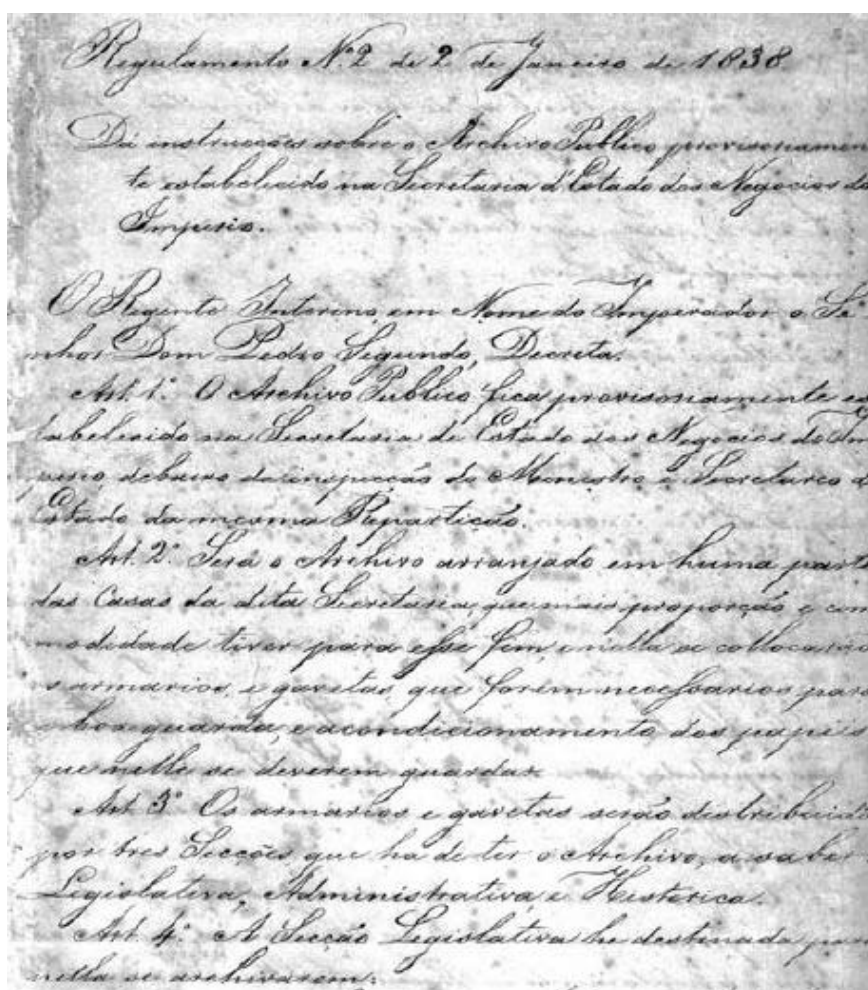 Regulamento N.º 2 de 2 de Janeiro de 1838
Dá instrucções sobre o Archivo Publico provisoriamen
te estabelecido na Secretaria d'Estado dos Negocios do
Imperio.
O Regente Interino, em Nome do Imperador o Se
nhor Dom Pedro Segundo, Decreta.
Art. 1.º O Archivo Publico fica provisoriamente es
tabelecido na Secretaria de Estado dos Negocios do Im
perio, debaixo da inspecção do Menistro e Secretareo d
Estado da mesma Repartição.
Art. 2.º Será o Archivo arranjado em huma parte
das Casas da dita Secretaria, que mais proporção e com
modidade tiver para esse fim, e nella se collocarão
os armarios, e gavetas, que forem necessarios para
a boa guarda, e acondicionamento dos papeis
que nelle se deverem guardar.
Art. 3.º Os armarios e gavetas serão distribuido
por tres Secções, que ha de ter o Archivo, a saber
Legislativa, Administrativa, e Historica.
Art. 4.º A Secção Legislativa he destinada para
nella se archivarem: